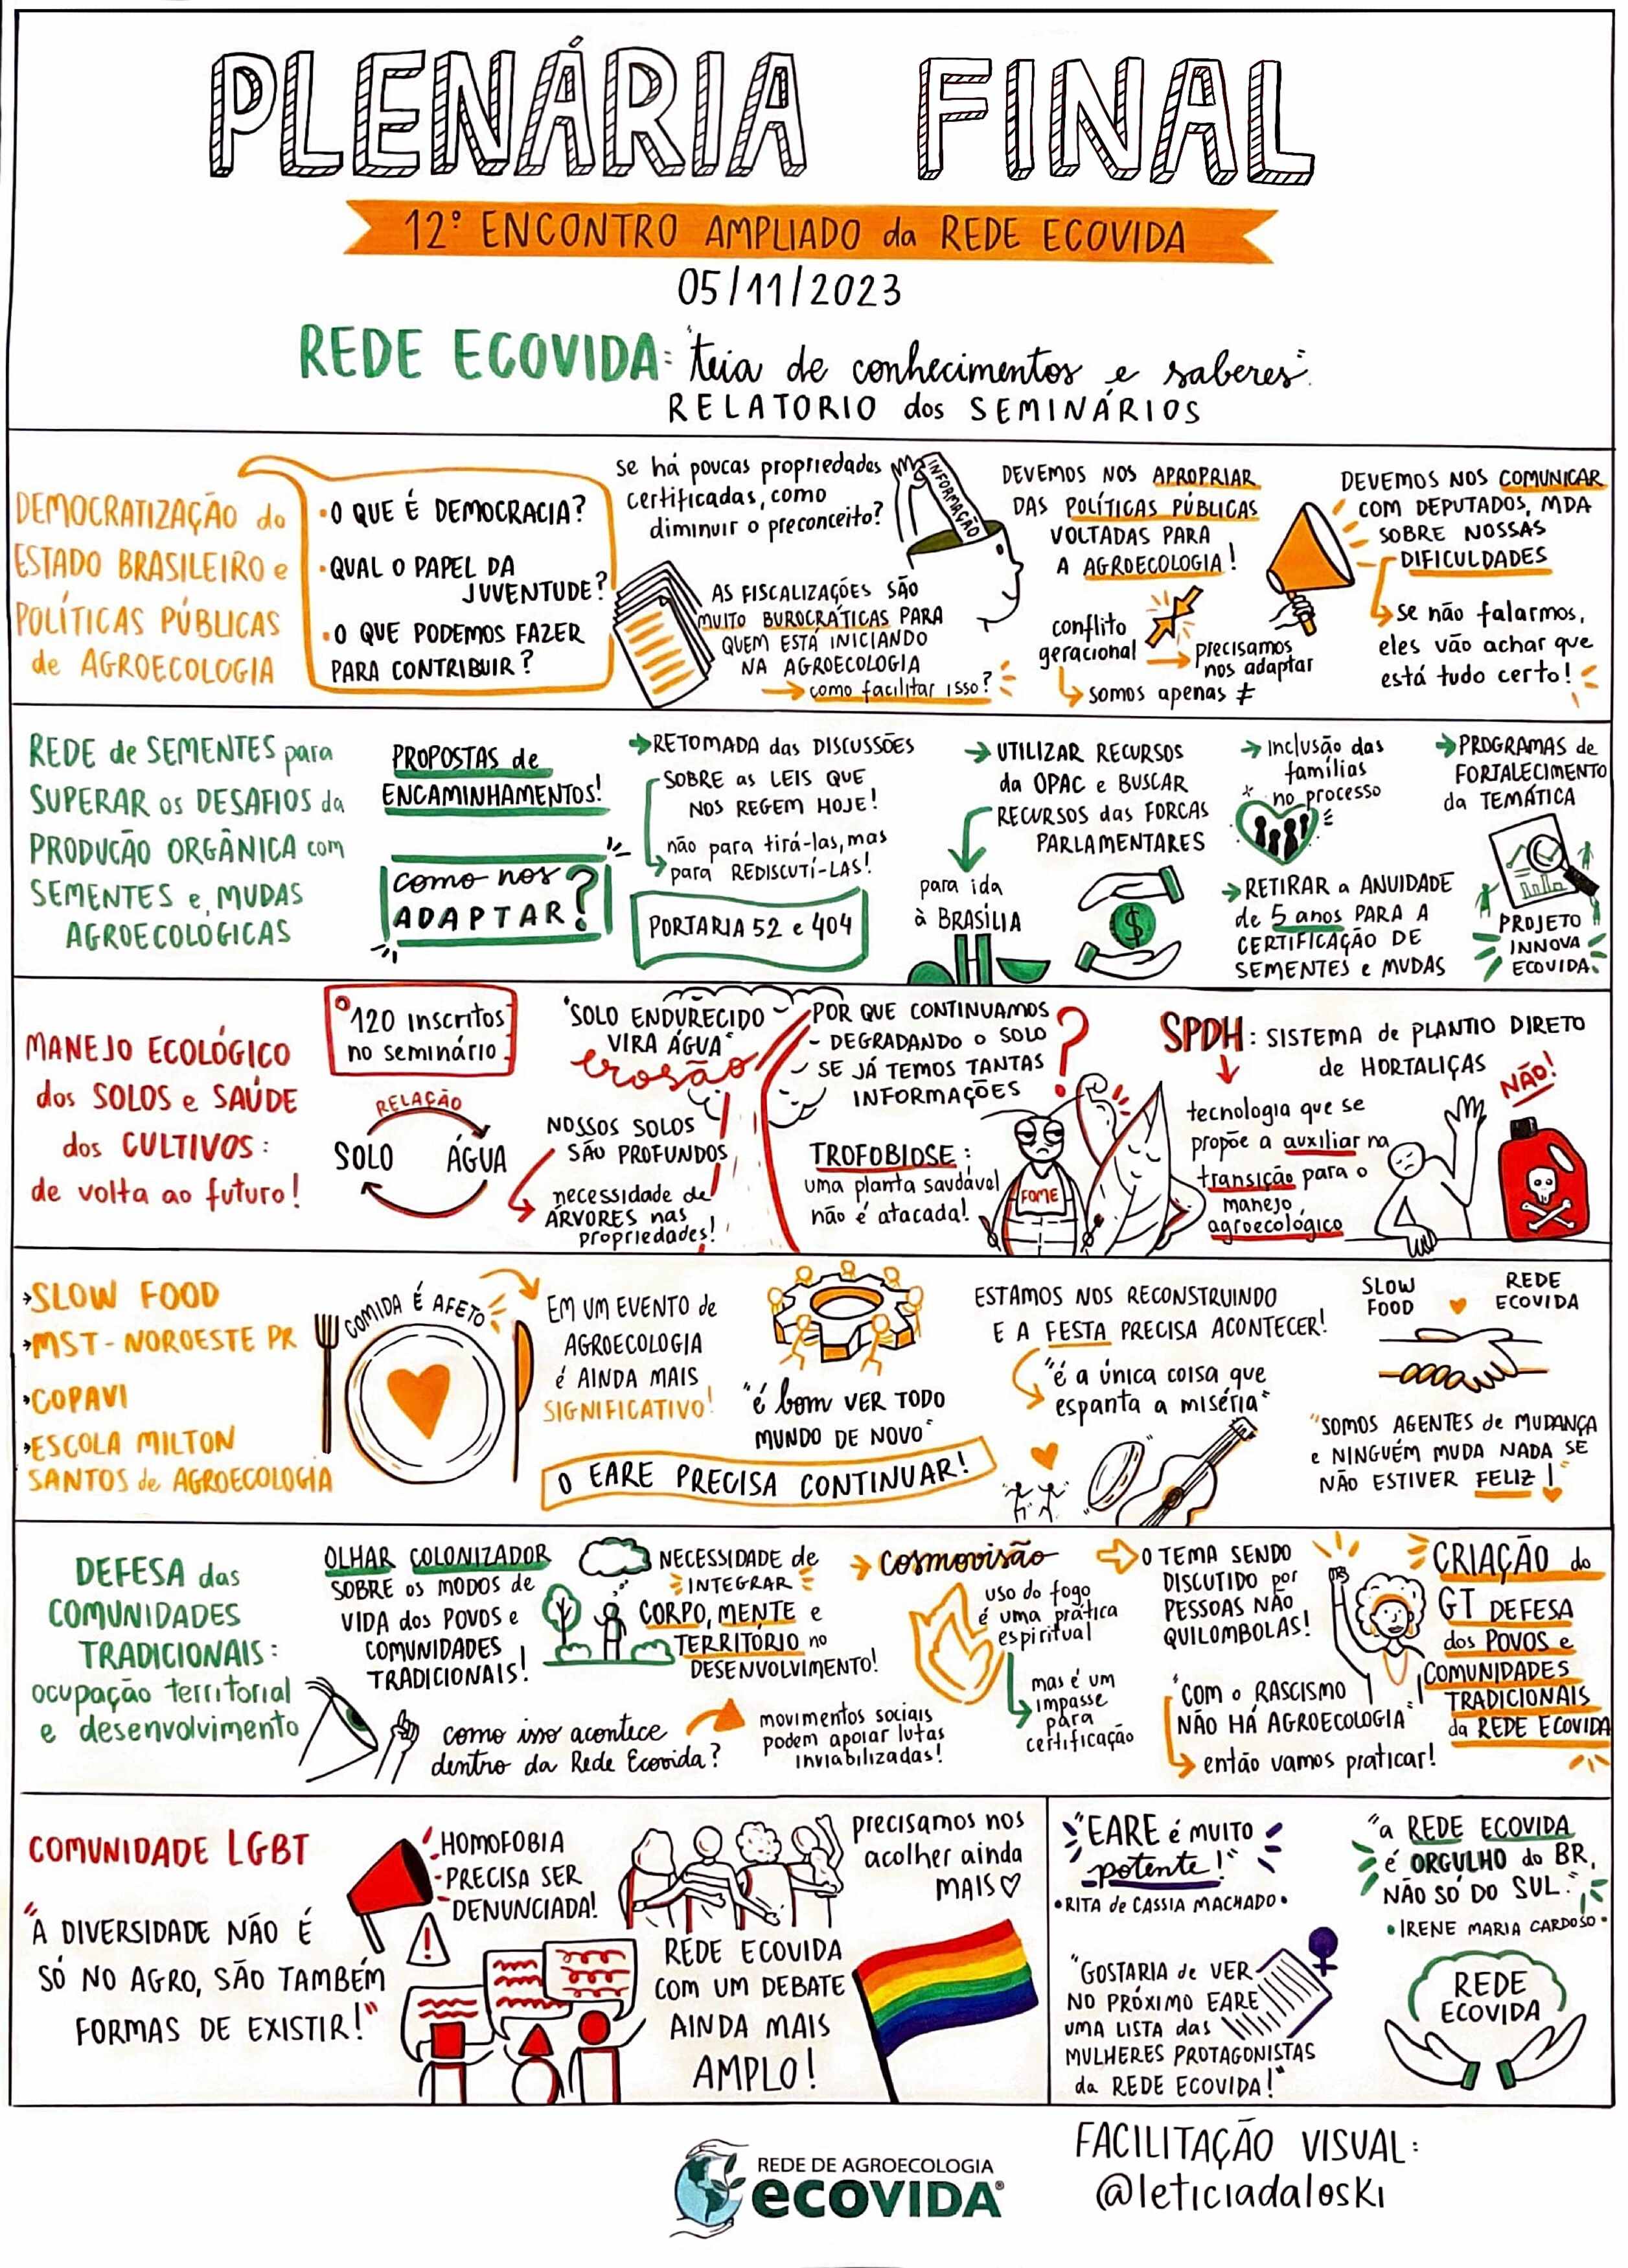 PLENÁRIA FINAL
12° ENCONTRO AMPLIADO da REDE ECOVIDA
05/11/2023
REDE ECOVIDA: "teia de conhecimentos e saberes".
RELATORIO dos SEMINÁRIOS
DEMOCRATIZAÇÃO do
ESTADO BRASILEIRO e
POLÍTICAS PÚBLICAS
de AGROECOLOGIA
•O QUE É DEMOCRACIA?
•QUAL O PAPEL DA
JUVENTUDE?
•O QUE PODEMOS FAZER
PARA CONTRIBUIR?
se há poucas propriedades
certificadas, como
diminuir o preconceito?
INFORMAÇÃO
AS FISCALIZAÇÕES SÃO
MUITO BUROCRÁTICAS PARA
QUEM ESTÁ INICIANDO
NA AGROECOLOGIA
→ como facilitar isso?
DEVEMOS NOS APROPRIAR
DAS POLÍTICAS PÚBLICAS
VOLTADAS PARA
A AGROECOLOGIA!
conflito
geracional
→ precisamos
nos adaptar
somos apenas ≠
DEVEMOS NOS COMUNICAR
COM DEPUTADOS, MDA
SOBRE NOSSAS
DIFICULDADES
se não falarmos,
eles vão achar que
está tudo certo!
REDE de SEMENTES para
SUPERAR os DESAFIOS da
PRODUCÃO ORGÂNICA com
SEMENTES e MUDAS
AGROECOLÓGICAS
PROPOSTAS de
ENCAMINHAMENTOS!
como nos
ADAPTAR?
→RETOMADA das DISCUSSÕES
SOBRE as LEIS QUE
NOS REGEM HOJE!
não para tirá-las, mas
para REDISCUTÍ-LAS!
PORTARIA 52 e 404
→ UTILIZAR RECURSOS
da OPAC e BUSCAR
RECURSOS das FORCAS
PARLAMENTARES
para ida
à BRASÍLIA
$
→ Inclusão das
famílias
no processo
→ RETIRAR a ANUIDADE
de 5 anos PARA A
CERTIFICAÇÃO DE
SEMENTES e MUDAS
→PROGRAMAS de
FORTALECIMENTO
da TEMÁTICA
PROJETO
INNOVA
ECOVIDA
MANEJO ECOLÓGICO
dos SOLOS e SAÚDE
dos CULTIVOS:
de volta ao futuro!
120 inscritos
no seminário
RELAÇÃO
SOLO ÁGUA
"SOLO ENDURECIDO
VIRA ÁGUA"
erosão
NOSSOS SOLOS
SÃO PROFUNDOS
necessidade de
ÁRVORES nas
propriedades!
POR QUE CONTINUAMOS
DEGRADANDO O SOLO
SE JÁ TEMOS TANTAS
INFORMAÇÕES ?
TROFOBIOSE:
uma planta saudável
não é atacada!
FOME
SPDH: SISTEMA de PLANTIO DIRETO
de HORTALIÇAS
tecnologia que se
propõe a auxiliar na
transição para o
manejo
agroecológico
NÃO!
→SLOW FOOD
→MST - NOROESTE PR
→COPAVI
→ESCOLA MILTON
SANTOS de AGROECOLOGIA
COMIDA É AFETO
EM UM EVENTO de
AGROECOLOGIA
é AINDA MAIS
SIGNIFICATIVO!
"é bom VER TODO
MUNDO DE NOVO"
O EARE PRECISA CONTINUAR!
ESTAMOS NOS RECONSTRUINDO
E A FESTA PRECISA ACONTECER!
"é a única coisa que
espanta a miséria"
SLOW
FOOD
REDE
ECOVIDA
"SOMOS AGENTES de MUDANÇA
e NINGUÉM MUDA NADA SE
NÃO ESTIVER FELIZ!"
DEFESA das
COMUNIDADES
TRADICIONAIS:
ocupação territorial
e desenvolvimento
OLHAR COLONIZADOR
SOBRE os MODOS de
VIDA dos POVOS e
COMUNIDADES
TRADICIONAIS!
como isso acontece
dentro da Rede Ecovida?
NECESSIDADE de
INTEGRAR
CORPO, MENTE e
TERRITÓRIO no
DESENVOLVIMENTO!
movimentos sociais
podem apoiar lutas
inviabilizadas!
→ cosmovisão
uso do fogo
é uma prática
espiritual
mas é um
impasse
para
certificação
O TEMA SENDO
DISCUTIDO por
PESSOAS NÃO
QUILOMBOLAS!
"COM o RASCISMO
NÃO HÁ AGROECOLOGIA"
então vamos praticar!
CRIAÇÃO do
GT DEFESA
dos POVOS e
COMUNIDADES
TRADICIONAIS
da REDE ECOVIDA
COMUNIDADE LGBT
"A DIVERSIDADE NÃO É
SÓ NO AGRO, SÃO TAMBÉM
FORMAS DE EXISTIR!"
HOMOFOBIA
PRECISA SER
DENUNCIADA!
!
precisamos nos
acolher ainda
MAIS♡
REDE ECOVIDA
COM UM DEBATE
AINDA MAIS
AMPLO!
"EARE é MUITO
potente!"
•RITA de CASSIA MACHADO•
"GOSTARIA de VER
NO PRÓXIMO EARE
UMA LISTA das
MULHERES PROTAGONISTAS
da REDE ECOVIDA!"
"a REDE ECOVIDA
é ORGULHO do BR,
NÃO SÓ DO SUL."
•IRENE MARIA CARDOSO•
REDE
ECOVIDA
REDE DE AGROECOLOGIA
ecovida®
FACILITAÇÃO VISUAL:
@leticiadaloski